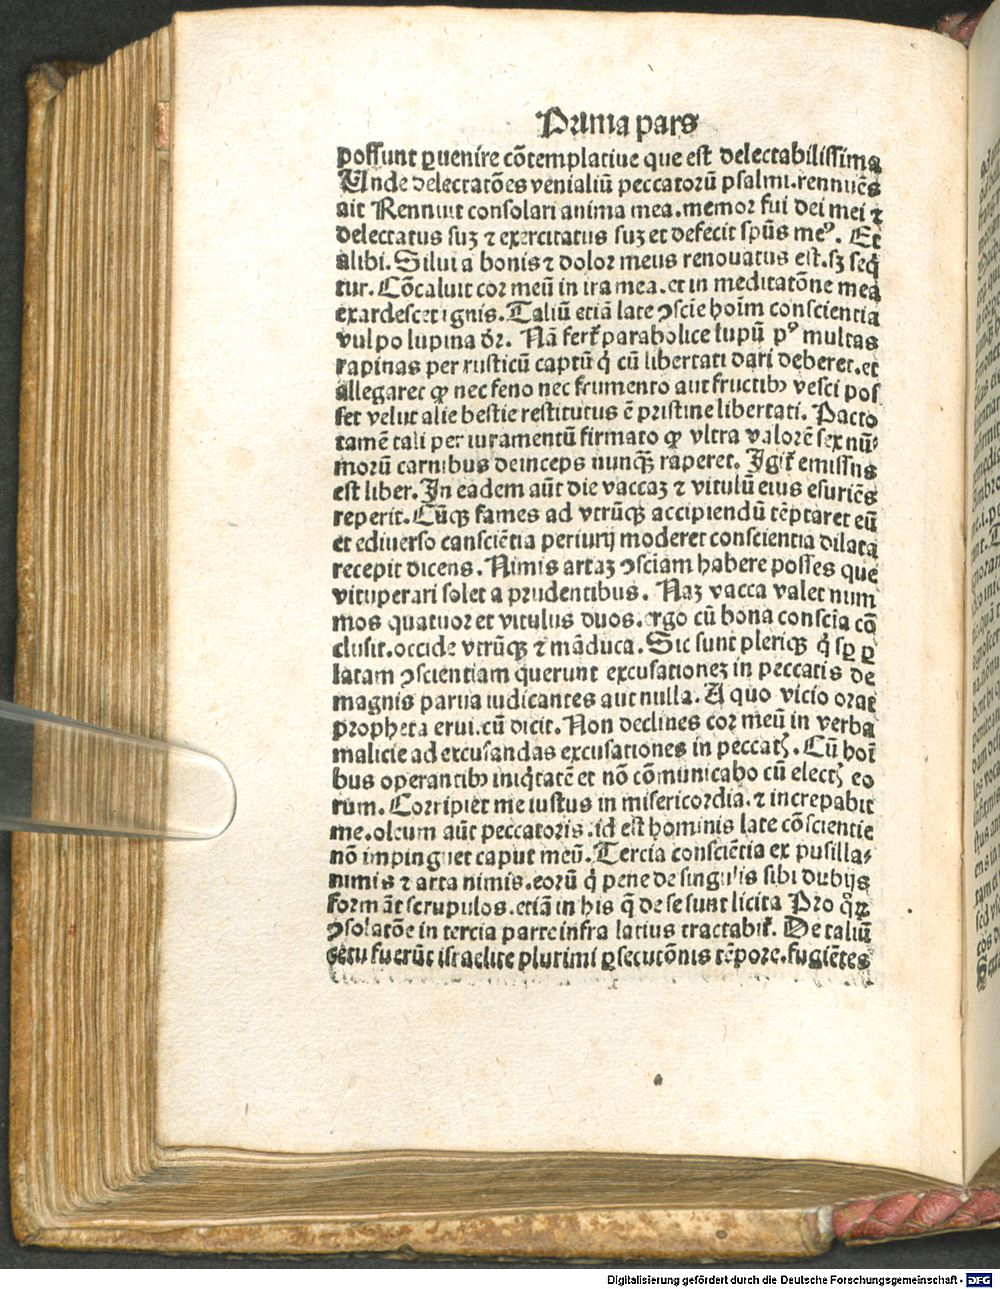 Prima pars
possunt ꝑuenire cōtemplatiue que est delectabilissima
Unde delectatōes venialiū peccatorū psalmi.rennuēs
ait Rennuit consolari anima mea.memor fui dei mei ⁊
delectatus suꝫ ⁊ exercitatus suꝫ et defecit spūs meꝰ. Et
alibi. Silui a bonis ⁊ dolor meus renouatus est.sꝫ seq̄
tur. Cōcaluit cor meū in ira mea.et in meditatōne mea
exardescet ignis. Taliū etiā late ↄscie hoīm conscientia
vulpo lupina dr̄. Nā fert᷑ parabolice lupū pꝰ multas
rapinas per rusticū captū q̄ cū libertati dari deberet.et
allegaret ꝙ nec feno nec frumento aut fructibꝫ vesci pos
set velut alie bestie restitutus ē pristine libertati. Pacto
tamē tali per iuramentū firmato ꝙ vltra valorē sex nū-
morū carnibus deinceps nunqꝫ raperet. Igit᷑ emissus
est liber. In eadem aūt die vaccaꝫ ⁊ vitulū eius esuriēs
reperit. Cūqꝫ fames ad vtrūqꝫ accipiendū tēptaret eū
et ediuerso consciētia periurij moderet conscientia dilata
recepit dicens. Nimis artaꝫ ↄsciam habere posses que
vituperari solet a prudentibus. Naꝫ vacca valet num
mos quatuor et vitulus duos.ergo cū bona conscīa cō
clusit.occide vtrūqꝫ ⁊ māduca. Sic sunt pleriqꝫ q̄ sꝑ ꝑ
latam ↄscientiam querunt excusationeꝫ in peccatis de
magnis parua iudicantes aut nulla. A quo vicio orat
propheta erui.cū dicit. Non declines cor meū in verba
malicie ad excusandas excusationes in peccatꝭ. Cū hoī
bus operantibꝫ iniq̄tatē et nō cōmunicabo cū electꝭ eo
rum. Corripiet me iustus in misericordia.⁊ increpabit
me.oleum aūt peccatoris.id est hominis late cōscientie
nō impinguet caput meū. Tercia consciētia ex pusilla-
nimis ⁊ arta nimis.eorū q̄ pene de singulis sibi dubijs
formāt scrupulos.etiā in his q̄ de se sunt licita Pro q̄ꝝ
ↄsolatōe in tercia parte infra latius tractabit᷑. De taliū
cetu fuerūt israelite plurimi ꝑsecutōnis tēpore.fugiētes
Digitalisierung gefördert durch die Deutsche Forschungsgemeinschaft - DFG